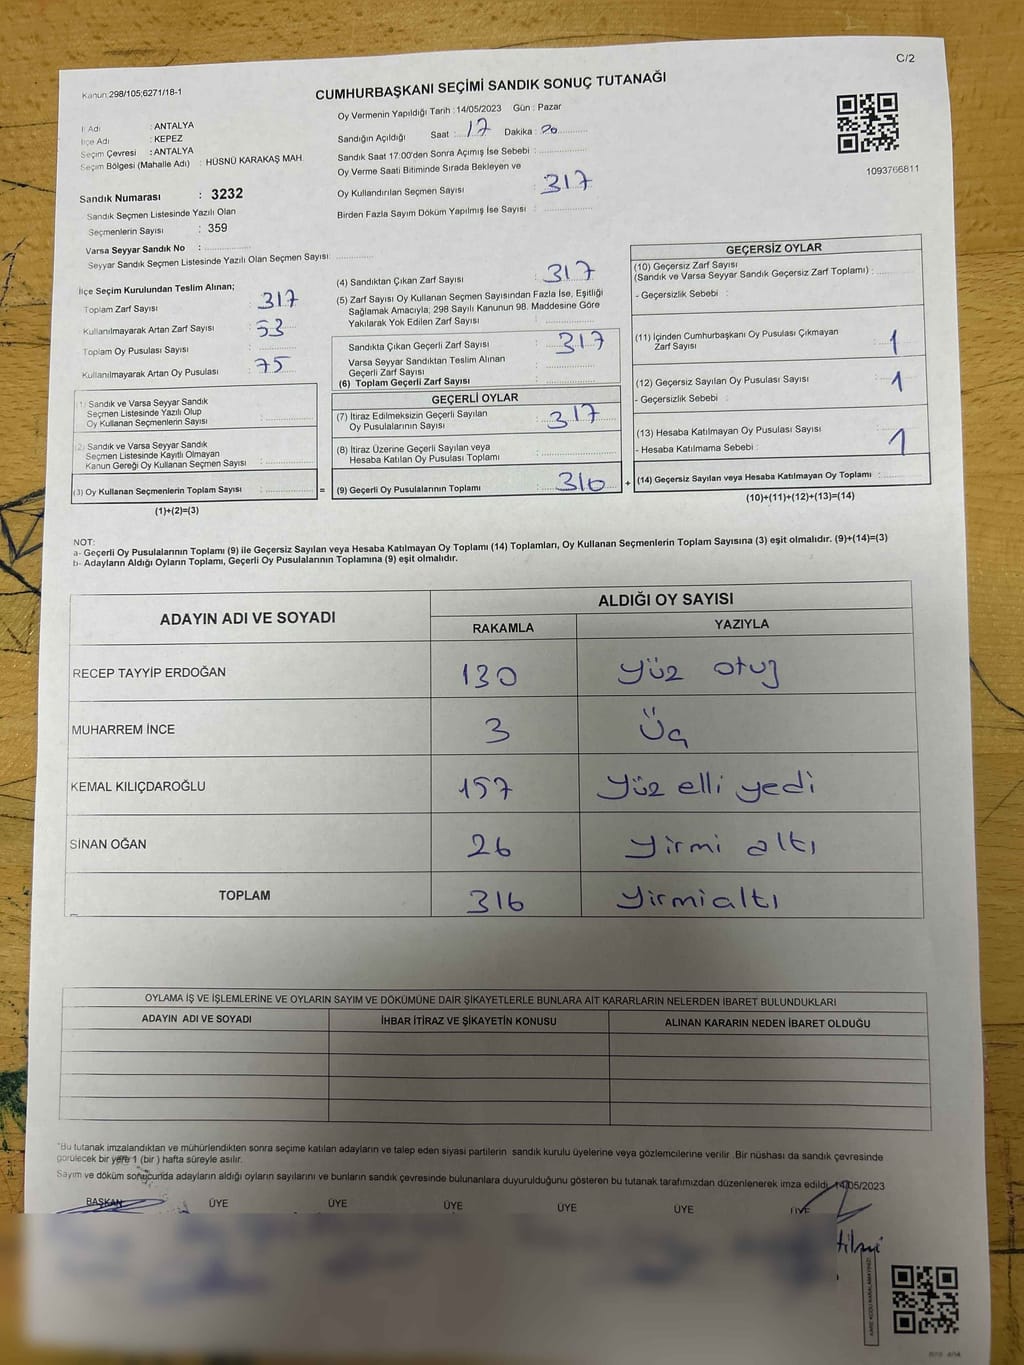 C/2
Kanun:298/105;6271/18-1
CUMHURBAŞKANI SEÇİMİ SANDIK SONUÇ TUTANAĞI
1093766811
İl Adı : ANTALYA
İlçe Adı : KEPEZ
Seçim Çevresi : ANTALYA
Seçim Bölgesi (Mahalle Adı) : HÜSNÜ KARAKAŞ MAH.
Sandık Numarası : 3232
Sandık Seçmen Listesinde Yazılı Olan
Seçmenlerin Sayısı : 359
Varsa Seyyar Sandık No :
Seyyar Sandık Seçmen Listesinde Yazılı Olan Seçmen Sayısı:
Oy Vermenin Yapıldığı Tarih : 14/05/2023 Gün : Pazar
Sandığın Açıldığı Saat : 17 Dakika :
Sandık Saat 17:00'den Sonra Açımış İse Sebebi :
Oy Verme Saati Bitiminde Sırada Bekleyen ve
Oy Kullandırılan Seçmen Sayısı : 317
Birden Fazla Sayım Döküm Yapılmış İse Sayısı :
İlçe Seçim Kurulundan Teslim Alınan;
Toplam Zarf Sayısı : 317
Kullanılmayarak Artan Zarf Sayısı : 53
Toplam Oy Pusulası Sayısı :
Kullanılmayarak Artan Oy Pusulası : 75
(1) Sandık ve Varsa Seyyar Sandık
Seçmen Listesinde Yazılı Olup
Oy Kullanan Seçmenlerin Sayısı :
(2) Sandık ve Varsa Seyyar Sandık
Seçmen Listesinde Kayıtlı Olmayan
Kanun Gereği Oy Kullanan Seçmen Sayısı :
(3) Oy Kullanan Seçmenlerin Toplam Sayısı : =
(1)+(2)=(3)
(4) Sandıktan Çıkan Zarf Sayısı : 317
(5) Zarf Sayısı Oy Kullanan Seçmen Sayısından Fazla İse, Eşitliği
Sağlamak Amacıyla; 298 Sayılı Kanunun 98. Maddesine Göre
Yakılarak Yok Edilen Zarf Sayısı :
Sandıkta Çıkan Geçerli Zarf Sayısı : 317
Varsa Seyyar Sandıktan Teslim Alınan
Geçerli Zarf Sayısı :
(6) Toplam Geçerli Zarf Sayısı :
GEÇERLİ OYLAR
(7) İtiraz Edilmeksizin Geçerli Sayılan
Oy Pusulalarının Sayısı : 317
(8) İtiraz Üzerine Geçerli Sayılan veya
Hesaba Katılan Oy Pusulası Toplamı :
(9) Geçerli Oy Pusulalarının Toplamı : 316 +
GEÇERSİZ OYLAR
(10) Geçersiz Zarf Sayısı
(Sandık ve Varsa Seyyar Sandık Geçersiz Zarf Toplamı) :
- Geçersizlik Sebebi :
(11) İçinden Cumhurbaşkanı Oy Pusulası Çıkmayan
Zarf Sayısı : 1
(12) Geçersiz Sayılan Oy Pusulası Sayısı : 1
- Geçersizlik Sebebi :
(13) Hesaba Katılmayan Oy Pusulası Sayısı : 1
- Hesaba Katılmama Sebebi :
(14) Geçersiz Sayılan veya Hesaba Katılmayan Oy Toplamı :
(10)+(11)+(12)+(13)=(14)
NOT:
a- Geçerli Oy Pusulalarının Toplamı (9) ile Geçersiz Sayılan veya Hesaba Katılmayan Oy Toplamı (14) Toplamları, Oy Kullanan Seçmenlerin Toplam Sayısına (3) eşit olmalıdır. (9)+(14)=(3)
b- Adayların Aldığı Oyların Toplamı, Geçerli Oy Pusulalarının Toplamına (9) eşit olmalıdır.
ADAYIN ADI VE SOYADI
ALDIĞI OY SAYISI
RAKAMLA YAZIYLA
RECEP TAYYİP ERDOĞAN 130 yüz otuz
MUHARREM İNCE 3 Üç
KEMAL KILIÇDAROĞLU 157 yüz elli yedi
SİNAN OĞAN 26 yirmi altı
TOPLAM 316 yirmialtı
OYLAMA İŞ VE İŞLEMLERİNE VE OYLARIN SAYIM VE DÖKÜMÜNE DAİR ŞİKAYETLERLE BUNLARA AİT KARARLARIN NELERDEN İBARET BULUNDUKLARI
ADAYIN ADI VE SOYADI İHBAR İTİRAZ VE ŞİKAYETİN KONUSU ALINAN KARARIN NEDEN İBARET OLDUĞU
"Bu tutanak imzalandıktan ve mühürlendikten sonra seçime katılan adayların ve talep eden siyasi partilerin sandık kurulu üyelerine veya gözlemcilerine verilir .Bir nüshası da sandık çevresinde
görülecek bir yere 1 (bir ) hafta süreyle asılır.
Sayım ve döküm sonucunda adayların aldığı oyların sayılarını ve bunların sandık çevresinde bulunanlara duyurulduğunu gösteren bu tutanak tarafımızdan düzenlenerek imza edildi. 14/05/2023
BAŞKAN ÜYE ÜYE ÜYE ÜYE ÜYE ÜYE